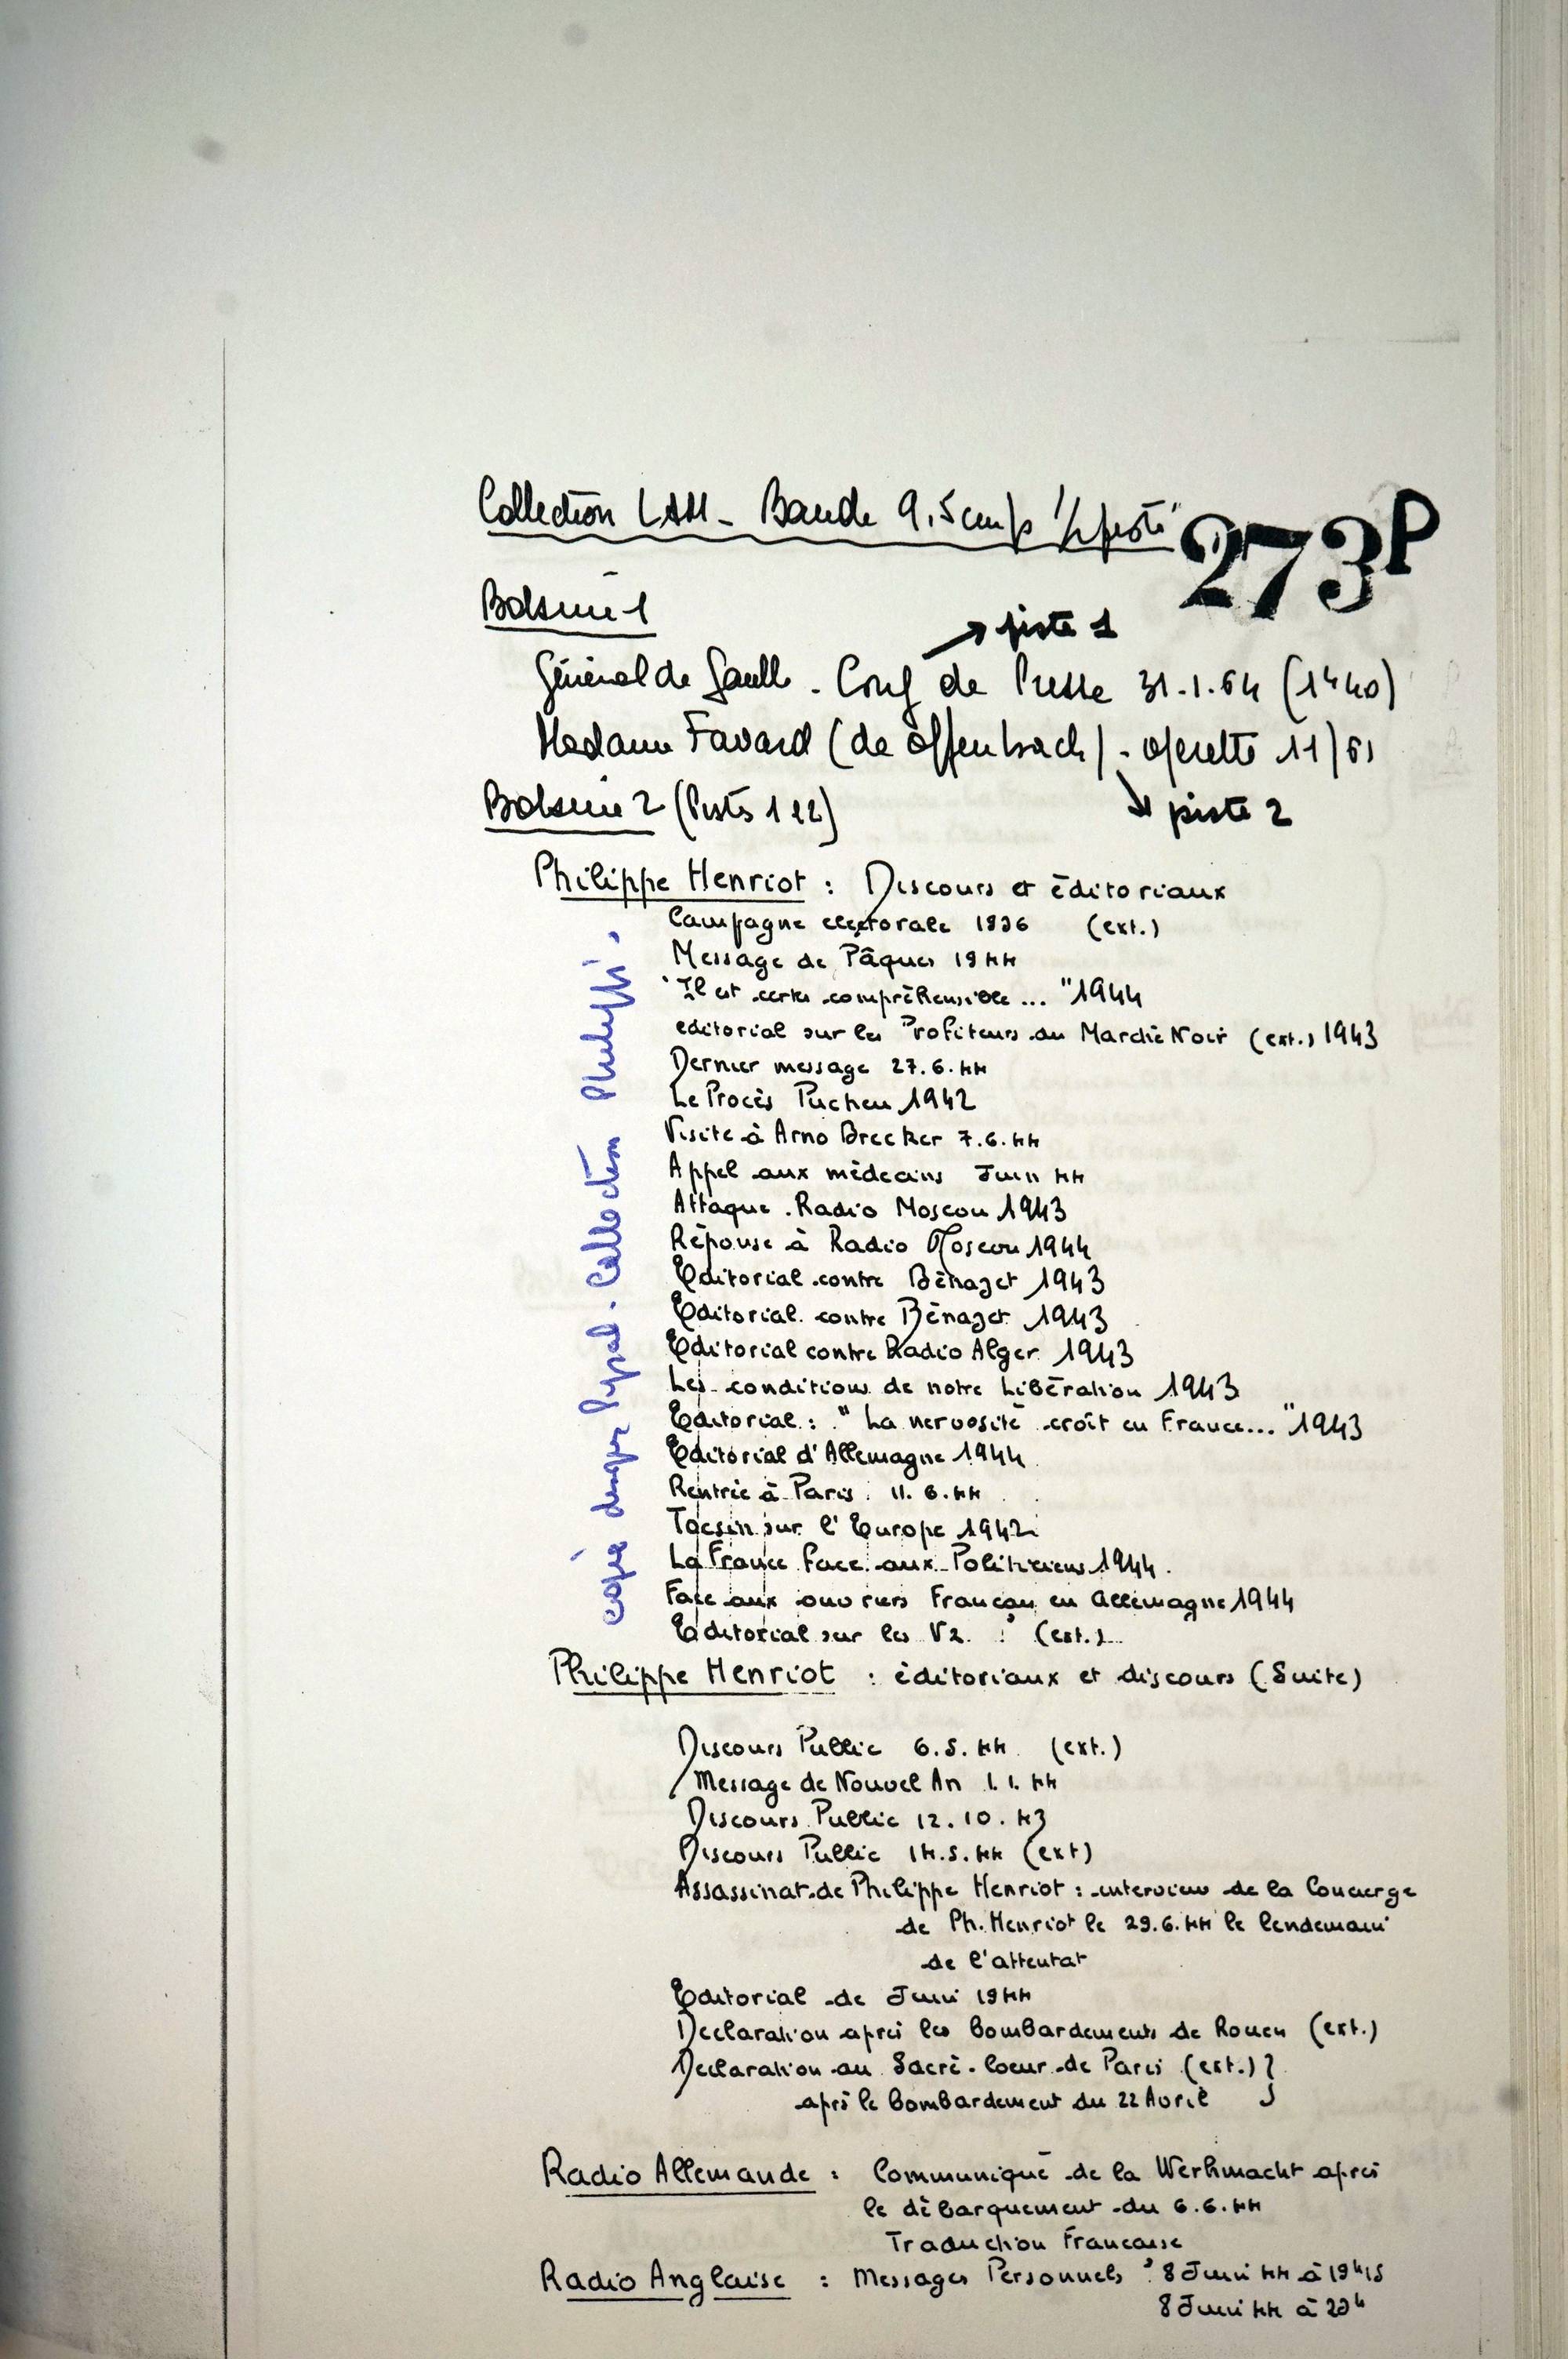 Collection LAM - Bande 9,5 cm/s 1/2 piste
273P
Bobine 1
→ piste 1
Général de Gaulle - Conf de Presse 31.1.64 (1h40)
Madame Favard (de Offenbach) - operette 11/61
↘ piste 2
Bobine 2 (Pistes 1 et 2)
Philippe Henriot : Discours et éditoriaux
Campagne electorale 1936 (ext.)
Message de Pâques 1944
"Il est certes compréhensible... " 1944
editorial sur les Profiteurs du Marché Noir (ext.) 1943
Dernier message 27.6.44
Le Procès Pucheu 1942
Visite à Arno Brecker 7.6.44
Appel aux médecins Juin 44
Attaque Radio Moscou 1943
Réponse à Radio Moscou 1944
Editorial contre Bénazet 1943
Editorial contre Bénazet 1943
Editorial contre Radio Alger 1943
Les conditions de notre Libération 1943
Editorial : " La nervosité croît en France... " 1943
Editorial d'Allemagne 1944
Rentrée à Paris 11.6.44
Tocsin sur l'Europe 1942
La France face aux Politiciens 1944.
Face aux ouvriers Français en Allemagne 1944
Editorial sur les V2 (ext.)
copie Collection
Philippe Henriot : éditoriaux et discours (Suite)
Discours Public 6.5.44 (ext.)
Message de Nouvel An 1.1.44
Discours Public 12.10.43
Discours Public 14.5.44 (ext)
Assassinat de Philippe Henriot : interview de la Concierge
de Ph. Henriot le 29.6.44 le lendemain
de l'attentat
Editorial de Juin 1944
Declaration après les bombardements de Rouen (ext.)
Declaration au Sacré-Coeur de Paris (ext.) }
après le bombardement du 22 Avril
Radio Allemande : Communiqué de la Werhmacht après
le débarquement du 6.6.44
Traduction Française
Radio Anglaise : Messages Personnels 8 Juin 44 à 19h15
8 Juin 44 à 20h